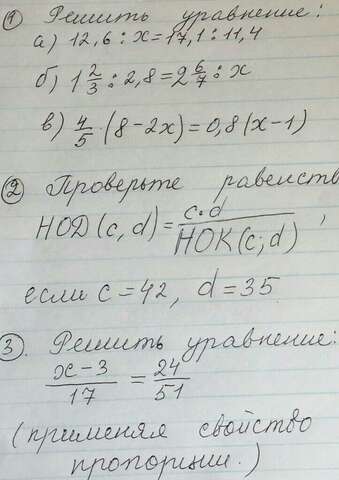 ① Решить уравнение:
а) 12,6 : x = 17,1 : 11,4
б) 1 2/3 : 2,8 = 2 6/7 : x
в) 4/5 · (8 - 2x) = 0,8 (x - 1)
② Проверьте равенств
НОД (c, d) = c·d / НОК (c; d) ,
если c = 42, d = 35
③. Решить уравнение:
x - 3 / 17 = 24 / 51
(применяя свойство
пропорции.)